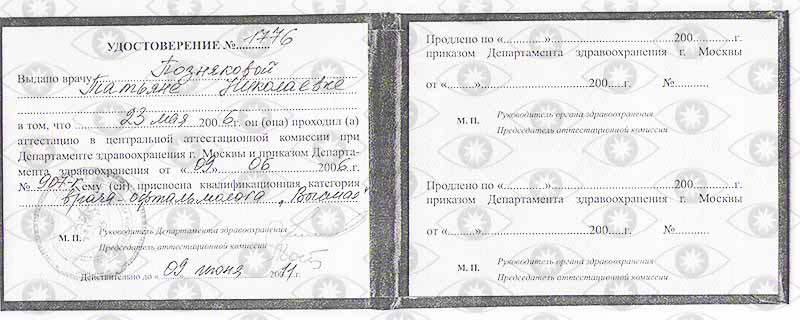 УДОСТОВЕРЕНИЕ №..........1776
Выдано врачу Позняковой
Татьяне Николаевне
в том, что 23 мая 2006г. он (она) проходил (а)
аттестацию в центральной аттестационной комиссии при
Департаменте здравоохранения г. Москвы и приказом Департа-
мента здравоохранения от «09» 06 2006г.
№ 907-к ему (ей) присвоена квалификационная категория
врача-офтальмолога „Высшая"
М. П. Руководитель Департамента здравоохранения
Председатель аттестационной комиссии
Действительно до « 09 июня 2011г.
Продлено по «...........»...............................200............г.
приказом Департамента здравоохранения г. Москвы
от «........»...........................200.....г. №..........
М. П. Руководитель органа здравоохранения
Председатель аттестационной комиссии
Продлено по «...........»...............................200............г.
приказом Департамента здравоохранения г. Москвы
от «........»...........................200.....г. №..........
М. П. Руководитель органа здравоохранения
Председатель аттестационной комиссии